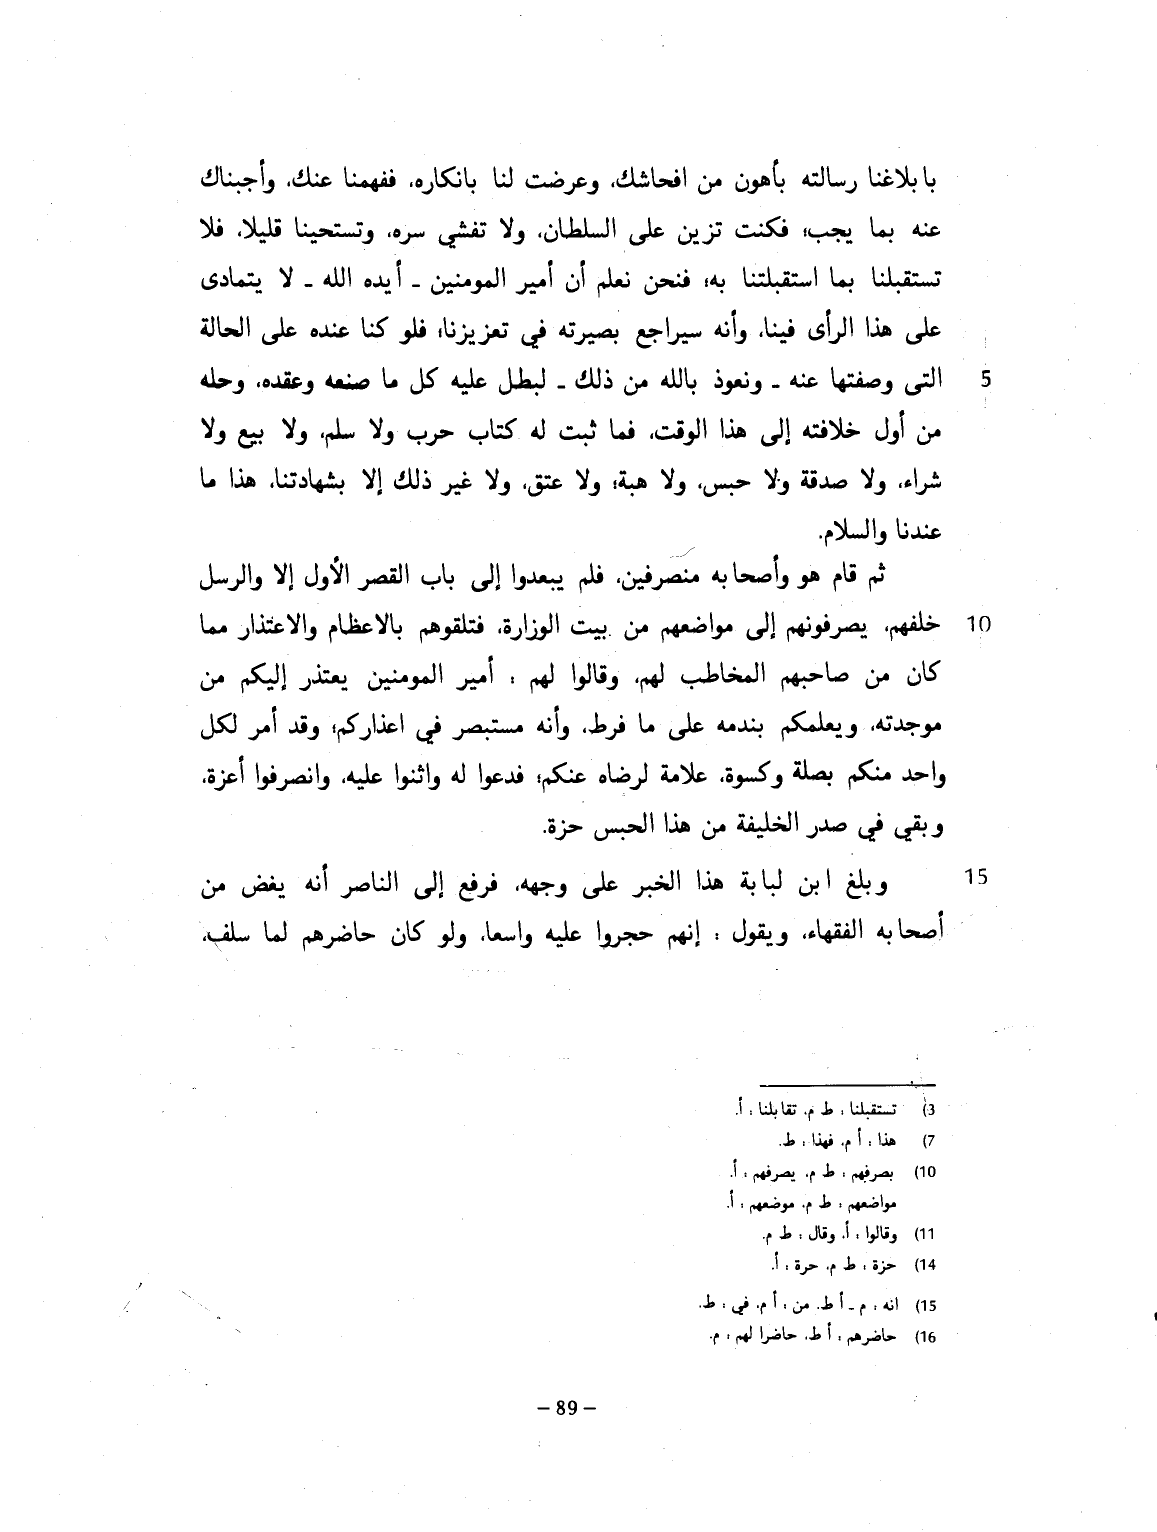 بابلاغنا رسالته بأهون من افحاشك، وعرضت لنا بانكاره، ففهمنا عنك، وأجبناك
عنه بما يجب؛ فكنت تزين على السلطان، ولا تفشي سره، وتستحينا قليلا، فلا
تستقبلنا بما استقبلتنا به؛ فنحن نعلم أن أمير المومنين ـ أيده الله ـ لا يتمادى
على هذا الرأى فينا، وأنه سيراجع بصيرته في تعزيزنا؛ فلو كنا عنده على الحالة
5 التى وصفتها عنه ـ ونعوذ بالله من ذلك ـ لبطل عليه كل ما صنعه وعقده، وحله
من أول خلافته إلى هذا الوقت، فما ثبت له كتاب حرب ولا سلم، ولا بيع ولا
شراء، ولا صدقة ولا حبس، ولا هبة؛ ولا عتق، ولا غير ذلك إلا بشهادتنا، هذا ما
عندنا والسلام.
ثم قام هو وأصحابه منصرفين، فلم يبعدوا إلى باب القصر الأول إلا والرسل
10 خلفهم، يصرفونهم إلى مواضعهم من بيت الوزارة، فتلقوهم بالاعظام والاعتذار مما
كان من صاحبهم المخاطب لهم، وقالوا لهم : أمير المومنين يعتذر إليكم من
موجدته، ويعلمكم بندمه على ما فرط، وأنه مستبصر في اعذاركم؛ وقد أمر لكل
واحد منكم بصلة وكسوة، علامة لرضاه عنكم؛ فدعوا له واثنوا عليه، وانصرفوا أعزة،
وبقي في صدر الخليفة من هذا الحبس حزة.
15 وبلغ ابن لبابة هذا الخبر على وجهه، فرفع إلى الناصر أنه يغض من
أصحابه الفقهاء، ويقول : إنهم حجروا عليه واسعا، ولو كان حاضرهم لما سلف،
3) تستقبلنا : ط م، تقابلنا : أ.
7) هذا : أ م، فهذا : ط.
10) بصرفهم : ط م، يصرفهم : أ.
مواضعهم : ط م، موضعهم : أ.
11) وقالوا : أ، وقال : ط م.
14) حزة : ط م، حرة : أ.
15) انه : م ـ أ ط. من : أ م، في : ط.
16) حاضرهم : أ ط، حاضرا لهم : م.
– 89 –